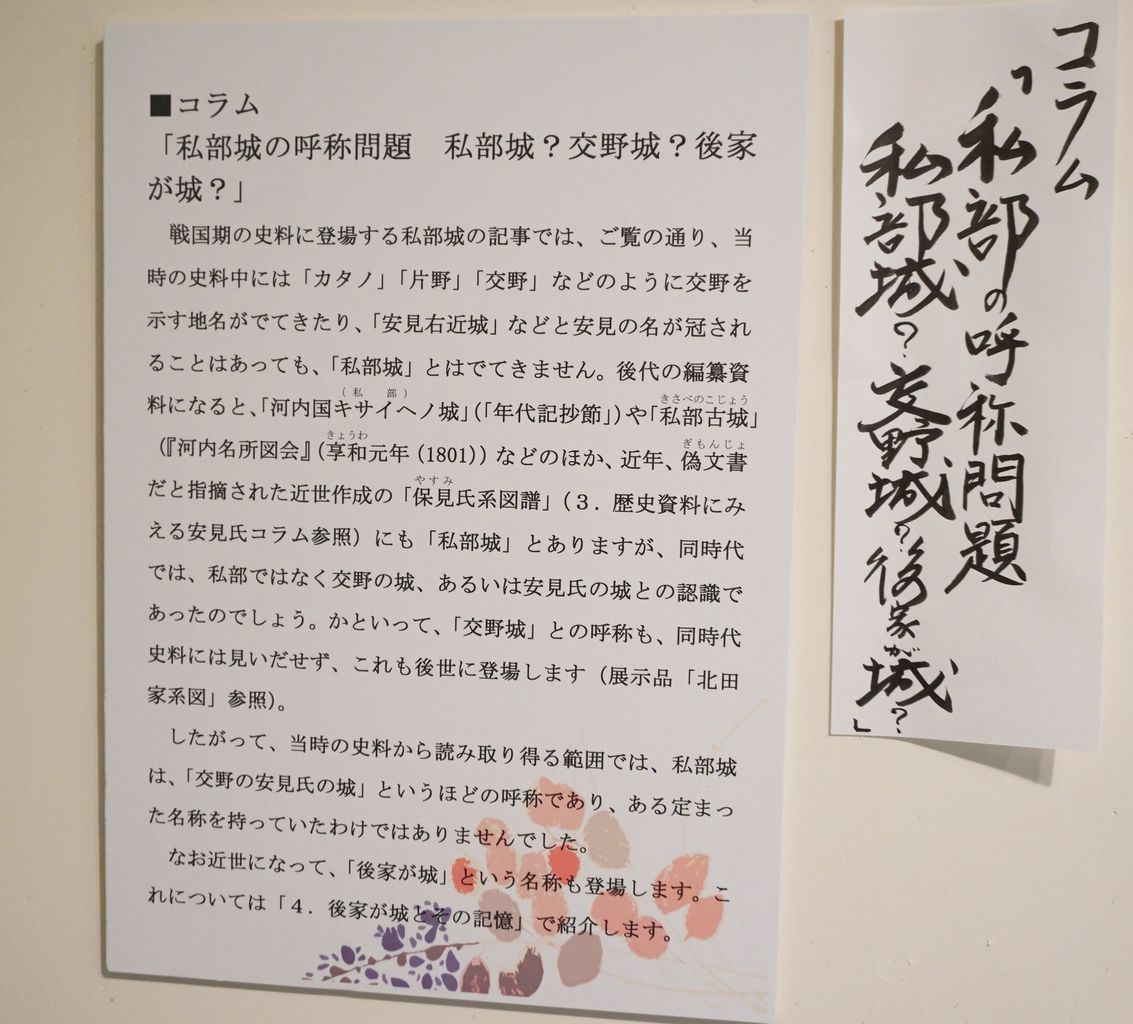 ■コラム
「私部城の呼称問題　私部城？交野城？後家
が城？」
　戦国期の史料に登場する私部城の記事では、ご覧の通り、当
時の史料中には「カタノ」「片野」「交野」などのように交野を
示す地名がでてきたり、「安見右近城」などと安見の名が冠され
ることはあっても、「私部城」とはでてきません。後代の編纂資
（私　部）
きさべのこじょう
料になると、「河内国キサイヘノ城」（「年代記抄節」）や「私部古城」
きょうわ
ぎもんじょ
（『河内名所図会』（享和元年（1801））などのほか、近年、偽文書
やすみ
だと指摘された近世作成の「保見氏系図譜」（３．歴史資料にみ
える安見氏コラム参照）にも「私部城」とありますが、同時代
では、私部ではなく交野の城、あるいは安見氏の城との認識で
あったのでしょう。かといって、「交野城」との呼称も、同時代
史料には見いだせず、これも後世に登場します（展示品「北田
家系図」参照）。
　したがって、当時の史料から読み取り得る範囲では、私部城
は、「交野の安見氏の城」というほどの呼称であり、ある定まっ
た名称を持っていたわけではありませんでした。
　なお近世になって、「後家が城」という名称も登場します。こ
れについては「４．後家が城とその記憶」で紹介します。
コラム
「私部の呼称問題
私部城？交野城？後家が城？」